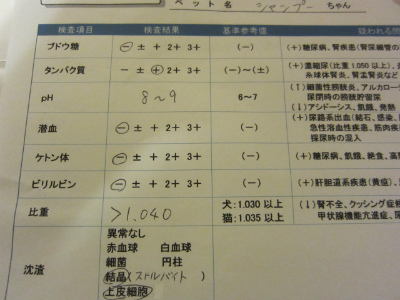 ペット名 シャンプー ちゃん
検査項目 検査結果 基準参考値 疑われる問
ブドウ糖 - ± + 2+ 3+ (-) (+)糖尿病、腎疾患(腎尿細管の
タンパク質 - ± + 2+ 3+ (-)~(±) (+)濃縮尿(比重1.050以上)、
糸球体腎炎、腎盂腎炎など
pH 8~9 6~7 (↑)細菌性膀胱炎、アルカローシ
尿閉時の膀胱貯留尿
(↓)アシドーシス、飢餓、発熱
潜血 - ± + 2+ 3+ (-) (+)尿路系出血(結石、感染、
急性溶血性疾患、筋肉疾
採尿時の混入
ケトン体 - ± + 2+ 3+ (-) (+)糖尿病、飢餓、絶食、高
ビリルビン - ± + 2+ 3+ (-) (+)肝胆道系疾患(黄疸)、
比重 >1.040 犬:1.030 以上 (↓)腎不全、クッシング症
猫:1.035 以上 甲状腺機能亢進症、尿
沈渣 異常なし
赤血球 白血球
細菌 円柱
結晶(ストルバイト)
上皮細胞